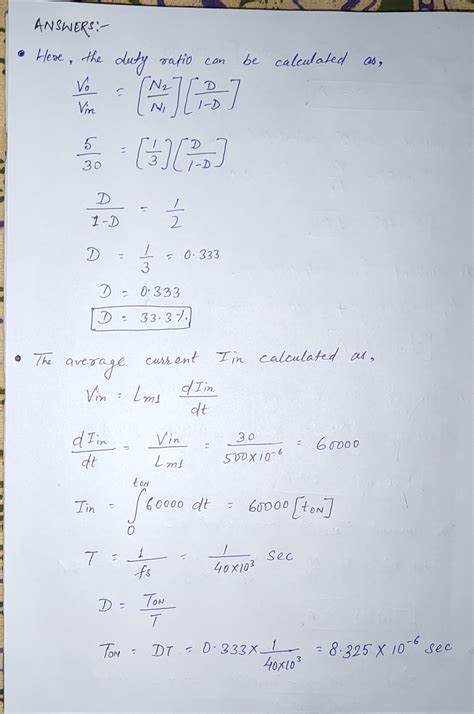 ANSWERS:-
• Here, the duty ratio can be calculated as,
Vo/Vin = [N2/N1] [D/1-D]
5/30 = [1/3] [D/1-D]
D/1-D = 1/2
D = 1/3 = 0.333
D = 0.333
D = 33.3%.
• The average current Iin calculated as,
Vin = Lm1 dIin/dt
dIin/dt = Vin/Lm1 = 30/500×10⁻⁶ = 60000
Iin = ∫₀^tON 60000 dt = 60000 [tON]
T = 1/fs = 1/40×10³ sec
D = TON/T
TON = DT = 0.333× 1/40×10³ = 8.325 × 10⁻⁶ sec